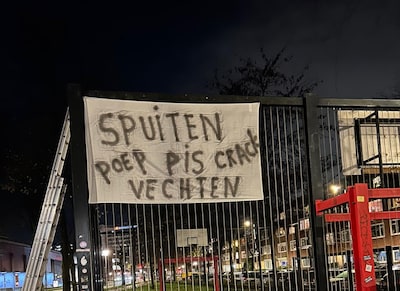 SPUITEN
POEP PIS CRACK
VECHTEN